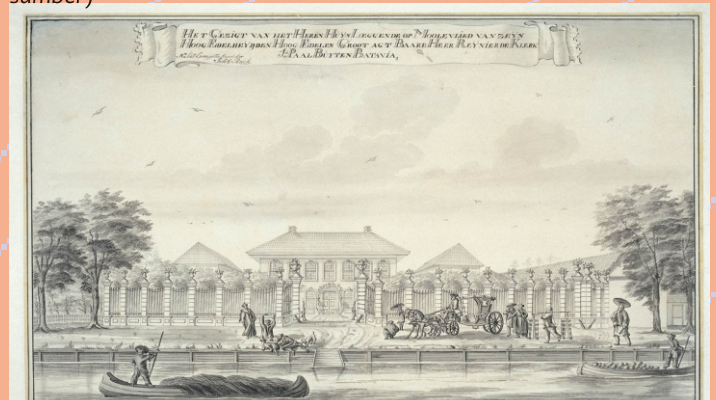 sumber)
HET GEZIGT VAN HET HEREN HUYS LEGGENDE OP MOOLENVLIED VAN ZEYN
HOOG EDELHEYD DEN HOOG EDELEN GROOT AGT BAARE HEER REYNIER DE KLERK
PAAL BUYTEN BATAVIA,